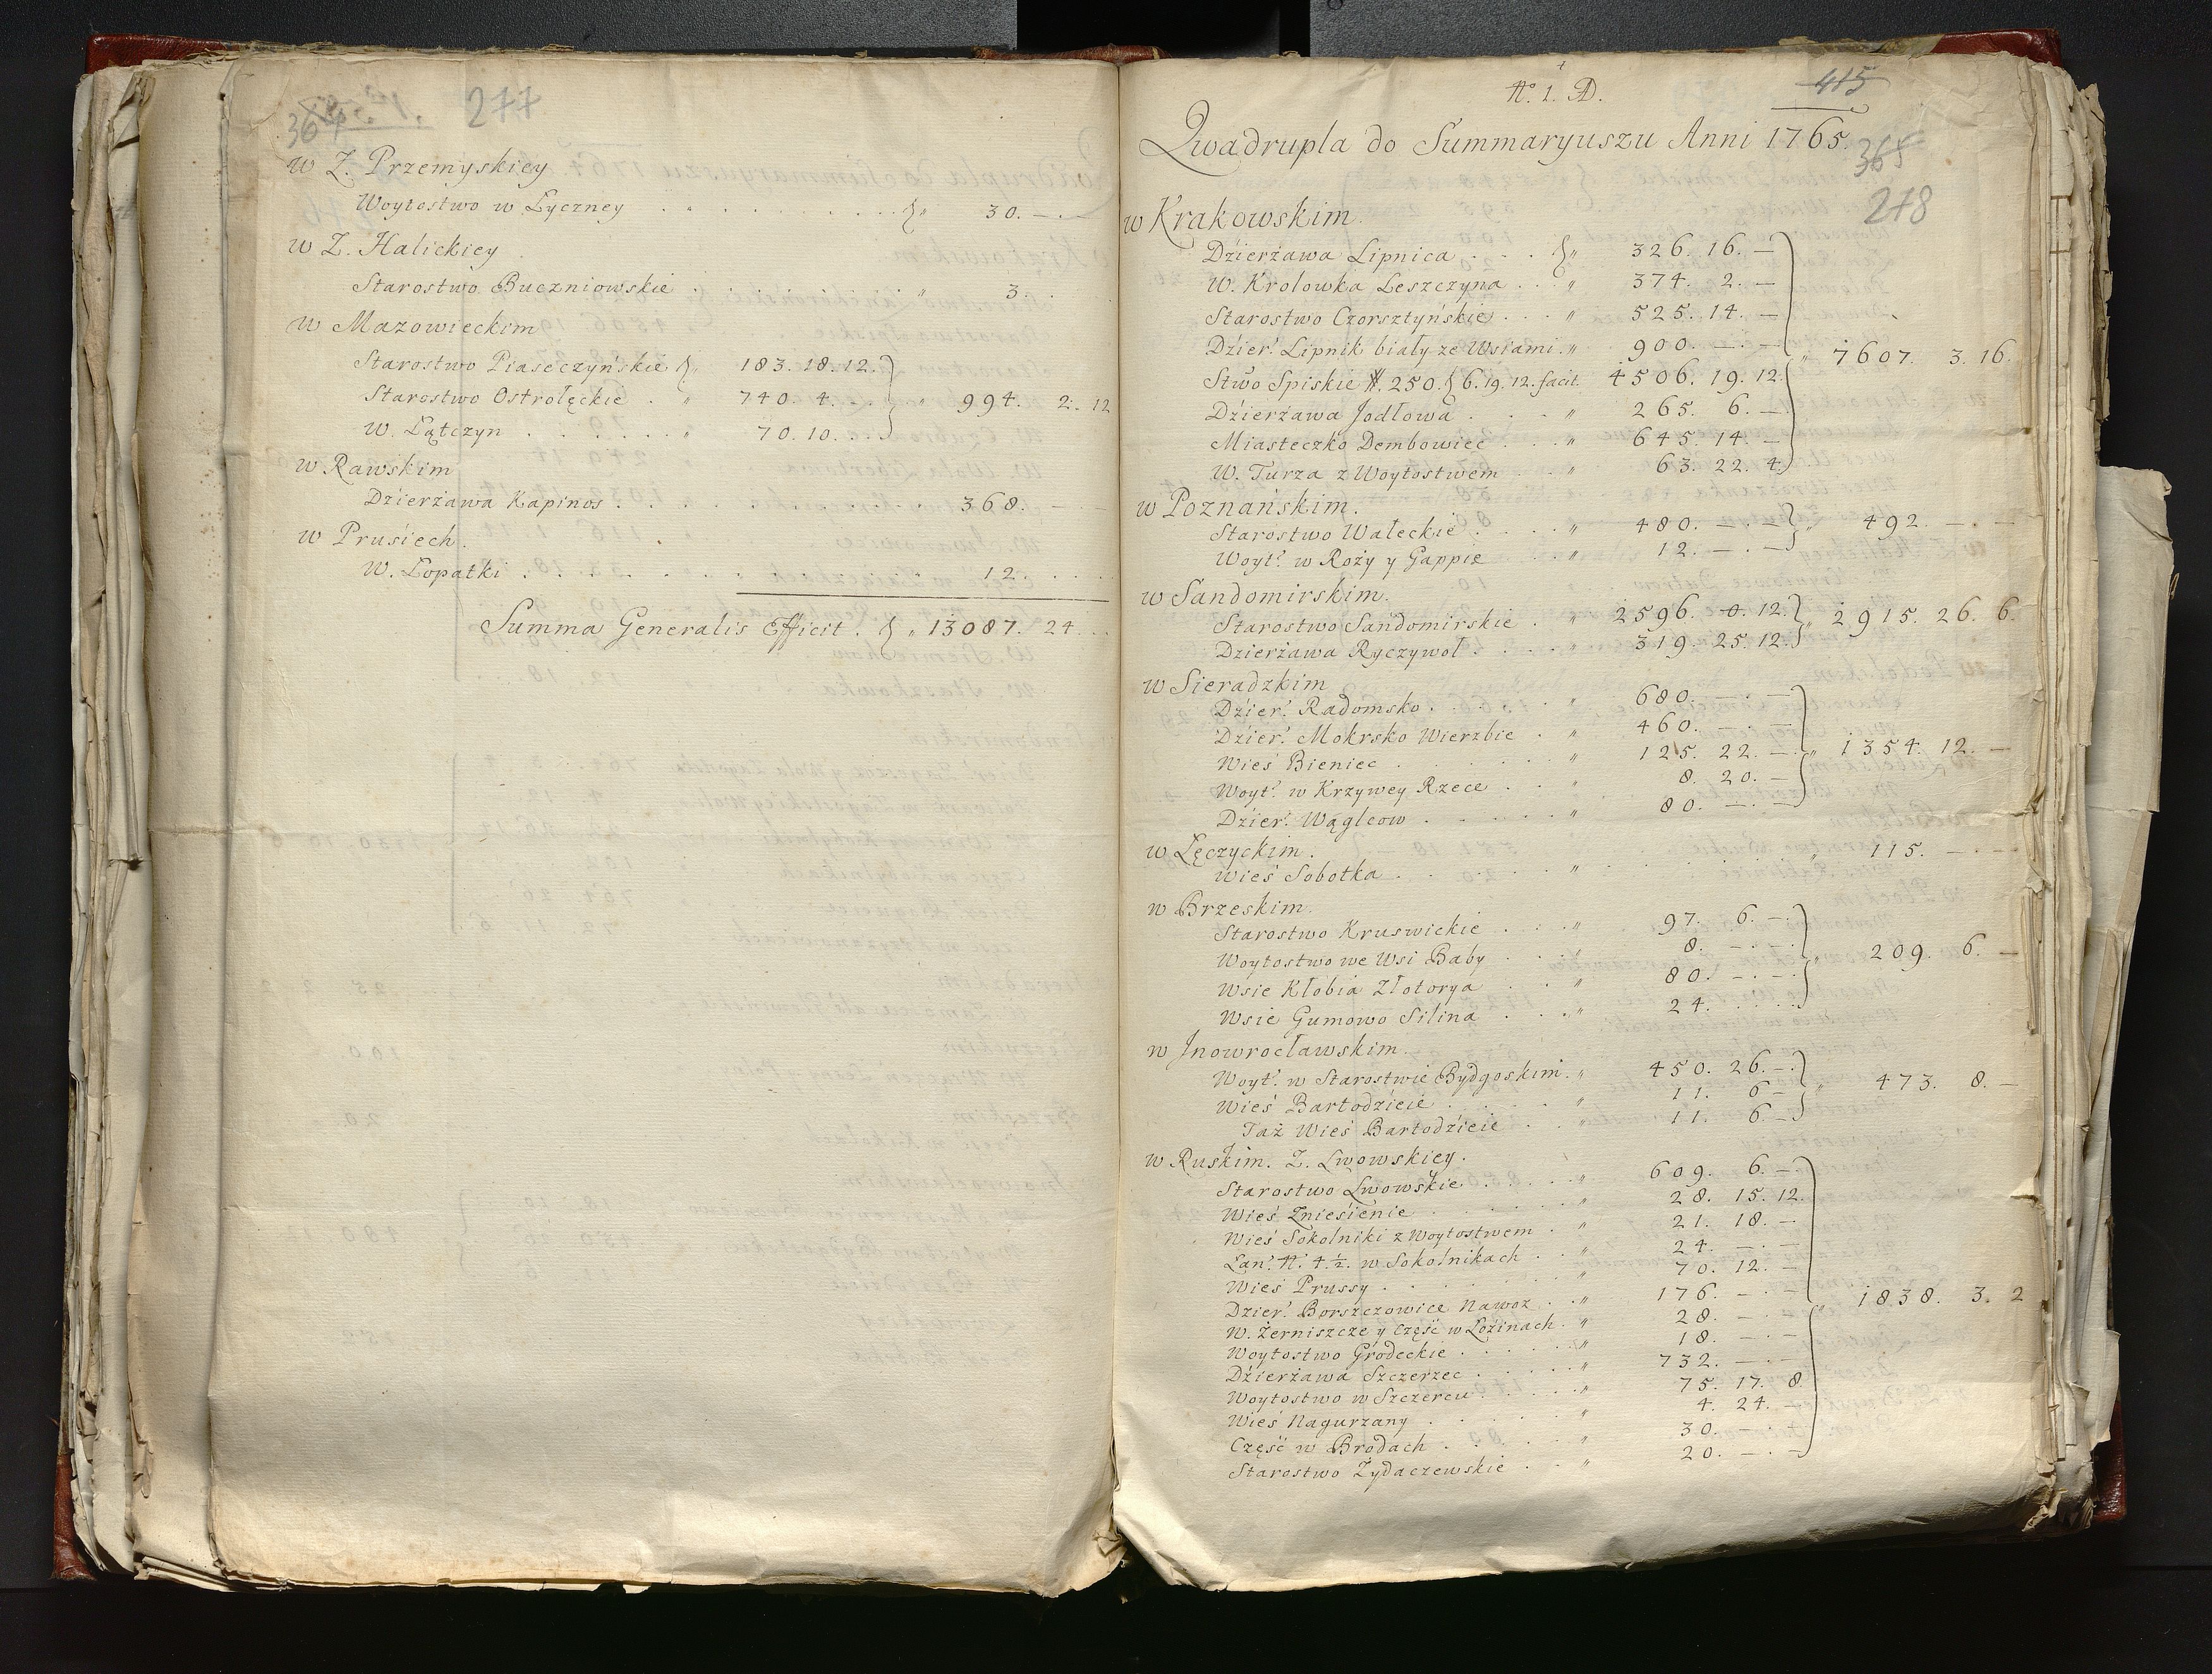 364 277
w Z. Przemyskiey
Woytostwo w Łyczney . . . . . . . . . . . „ 30. — . —
w Z. Halickiey
Starostwo Buczniowskie . . . . . . . . . „ 3. . .
w Mazowieckim
Starostwo Piaseczyńskie „ 183. 18. 12.
Starostwo Ostrołęckie . „ 740. 4. — . „ 994. 2. 12
W. Łątczyn . . . . . . „ 70. 10. . .
w Rawskim
Dźierżawa Kapinos . . . . . . . . . . „ 368. — . —
w Prusiech.
W. Łopatki . . . . . . . . . . . . . . 12. . . .
Summa Generalis Efficit . „ 13087. 24 . . .
№. 1. D.
415
Qwadrupla do Summaryuszu Anni 1765.
365
278
w Krakowskim.
Dźierżawa Lipnica . . . „ 326. 16. —
W. Krolowka Leszczyna . . „ 374. 2. —
Starostwo Czorsztyńskie . . . „ 525. 14. —
Dźier. Lipnik biały ze Wsiami. „ 900. — . — „ 7607. 3. 16.
Stwo Spiskie #. 250. 6. 19. 12. facit. 4506. 19. 12.
Dźierżawa Jodłowa . . . . „ 265. 6. —
Miasteczko Dembowiec . . . „ 645. 14. —
W. Turza z Woytostwem . . „ 63. 22. 4.
w Poznańskim.
Starostwo Wałeckie . . . . „ 480. — . — „ 492. — . —
Woyt. w Roży y Gappie . . . „ 12. — . —
w Sandomirskim.
Starostwo Sandomirskie . „ 2596. 0. 12. „ 2915. 26. 6.
Dzierżawa Ryczywoł . . . . „ 319. 25. 12.
w Sieradzkim
Dźier. Radomsko . . . . . „ 680. — . —
Dźier. Mokrsko Wierzbie . „ 460. — . —
Wieś Bieniec . . . . . . „ 125. 22. — „ 1354. 12. —
Woyt. w Krzywey Rzece . . „ 8. 20. —
Dźier. Wąglcow . . . . . „ 80. — . —
w Łęczyckim.
Wieś Sobotka . . . . . . „ . . . . . . „ 115. — . —
w Brzeskim.
Starostwo Kruswickie . . . „ 97. 6. —
Woytostwo we Wsi Baby . . „ 8. — . — „ 209. 6. —
Wsie Kłobia Złotorya . . „ 80. — . —
Wsie Gumowo Silina . . . „ 24. . . .
w Jnowrocławskim.
Woyt. w Starostwie Bydgoskim. „ 450. 26. —
Wieś Bartodzieie . . . . „ 11. 6 — „ 473. 8. —
Taż Wieś Bartodźieie . . „ 11. 6 —
w Ruskim. Z. Lwowskiey.
Starostwo Lwowskie . . . . . „ 609. 6. —
Wieś Zniesienie . . . . . . „ 28. 15. 12.
Wieś Sokolniki z Woytostwem . „ 21. 18. —
Łan. №. 4 ½. w Sokolnikach . . „ 24. — . —
Wieś Prussy . . . . . . „ 70. 12. —
Dzier. Borszczowice Nawoz . . „ 176. — . —
W. Żerniszcze y Część w Łożinach . „ 28. — . — „ 1838. 3. 2
Woytostwo Grodeckie . . . . . „ 18. — . —
Dźierżawa Szczerzec . . . . . „ 732. — . —
Woytostwo w Szczercu . . . . . „ 75. 17. 8
Wieś Nagurzany . . . . . . „ 4. 24. —
Część w Brodach . . . . . . „ 30. — . —
Starostwo Żydaczewskie . . „ 20. — . —